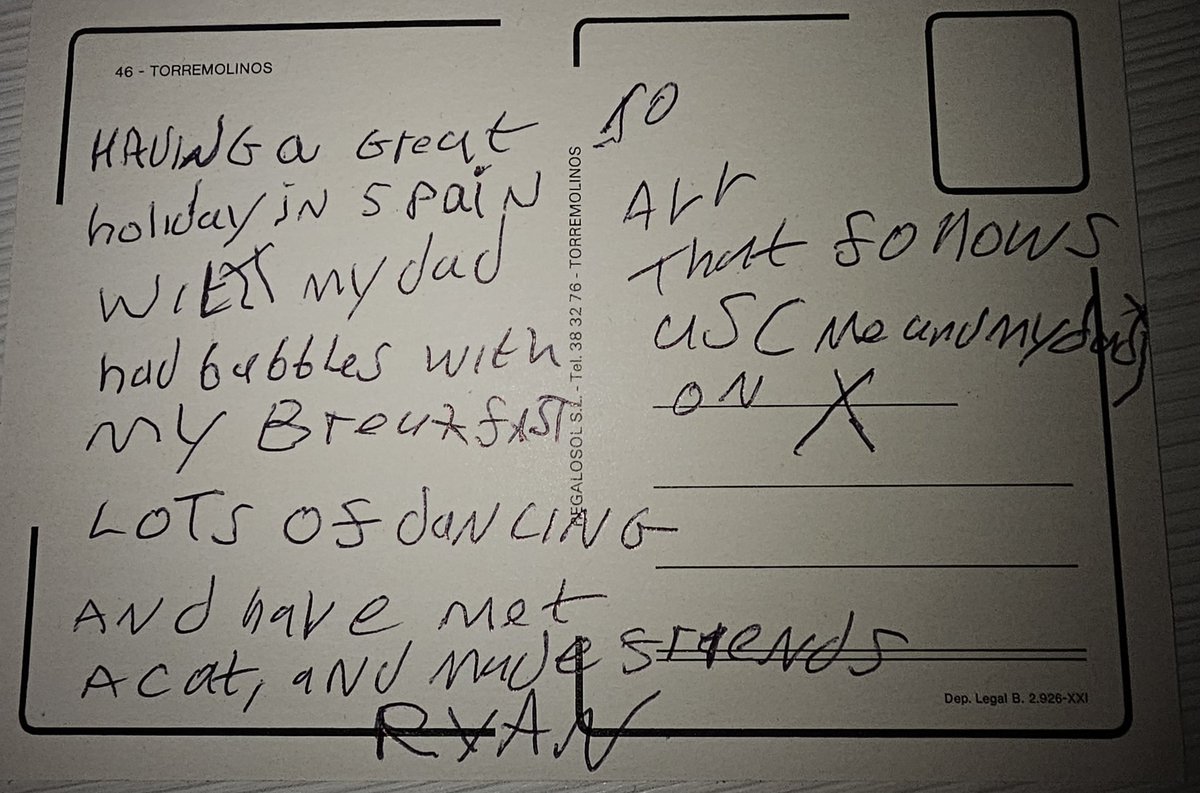 46 - TORREMOLINOS
HAVING a Great
holiday iN SPaiN
WITH my dad
had bubbles with
MY Breakfast
LOTS OF daNCING
ANd have Met
A cat, aNd Made Friends
RYAN
REGALOSOL S.L. - Tel. 38 32 76 - TORREMOLINOS
TO
ALL
That follows
US (Me and My dad)
ON X
Dep. Legal B. 2.926-XXI